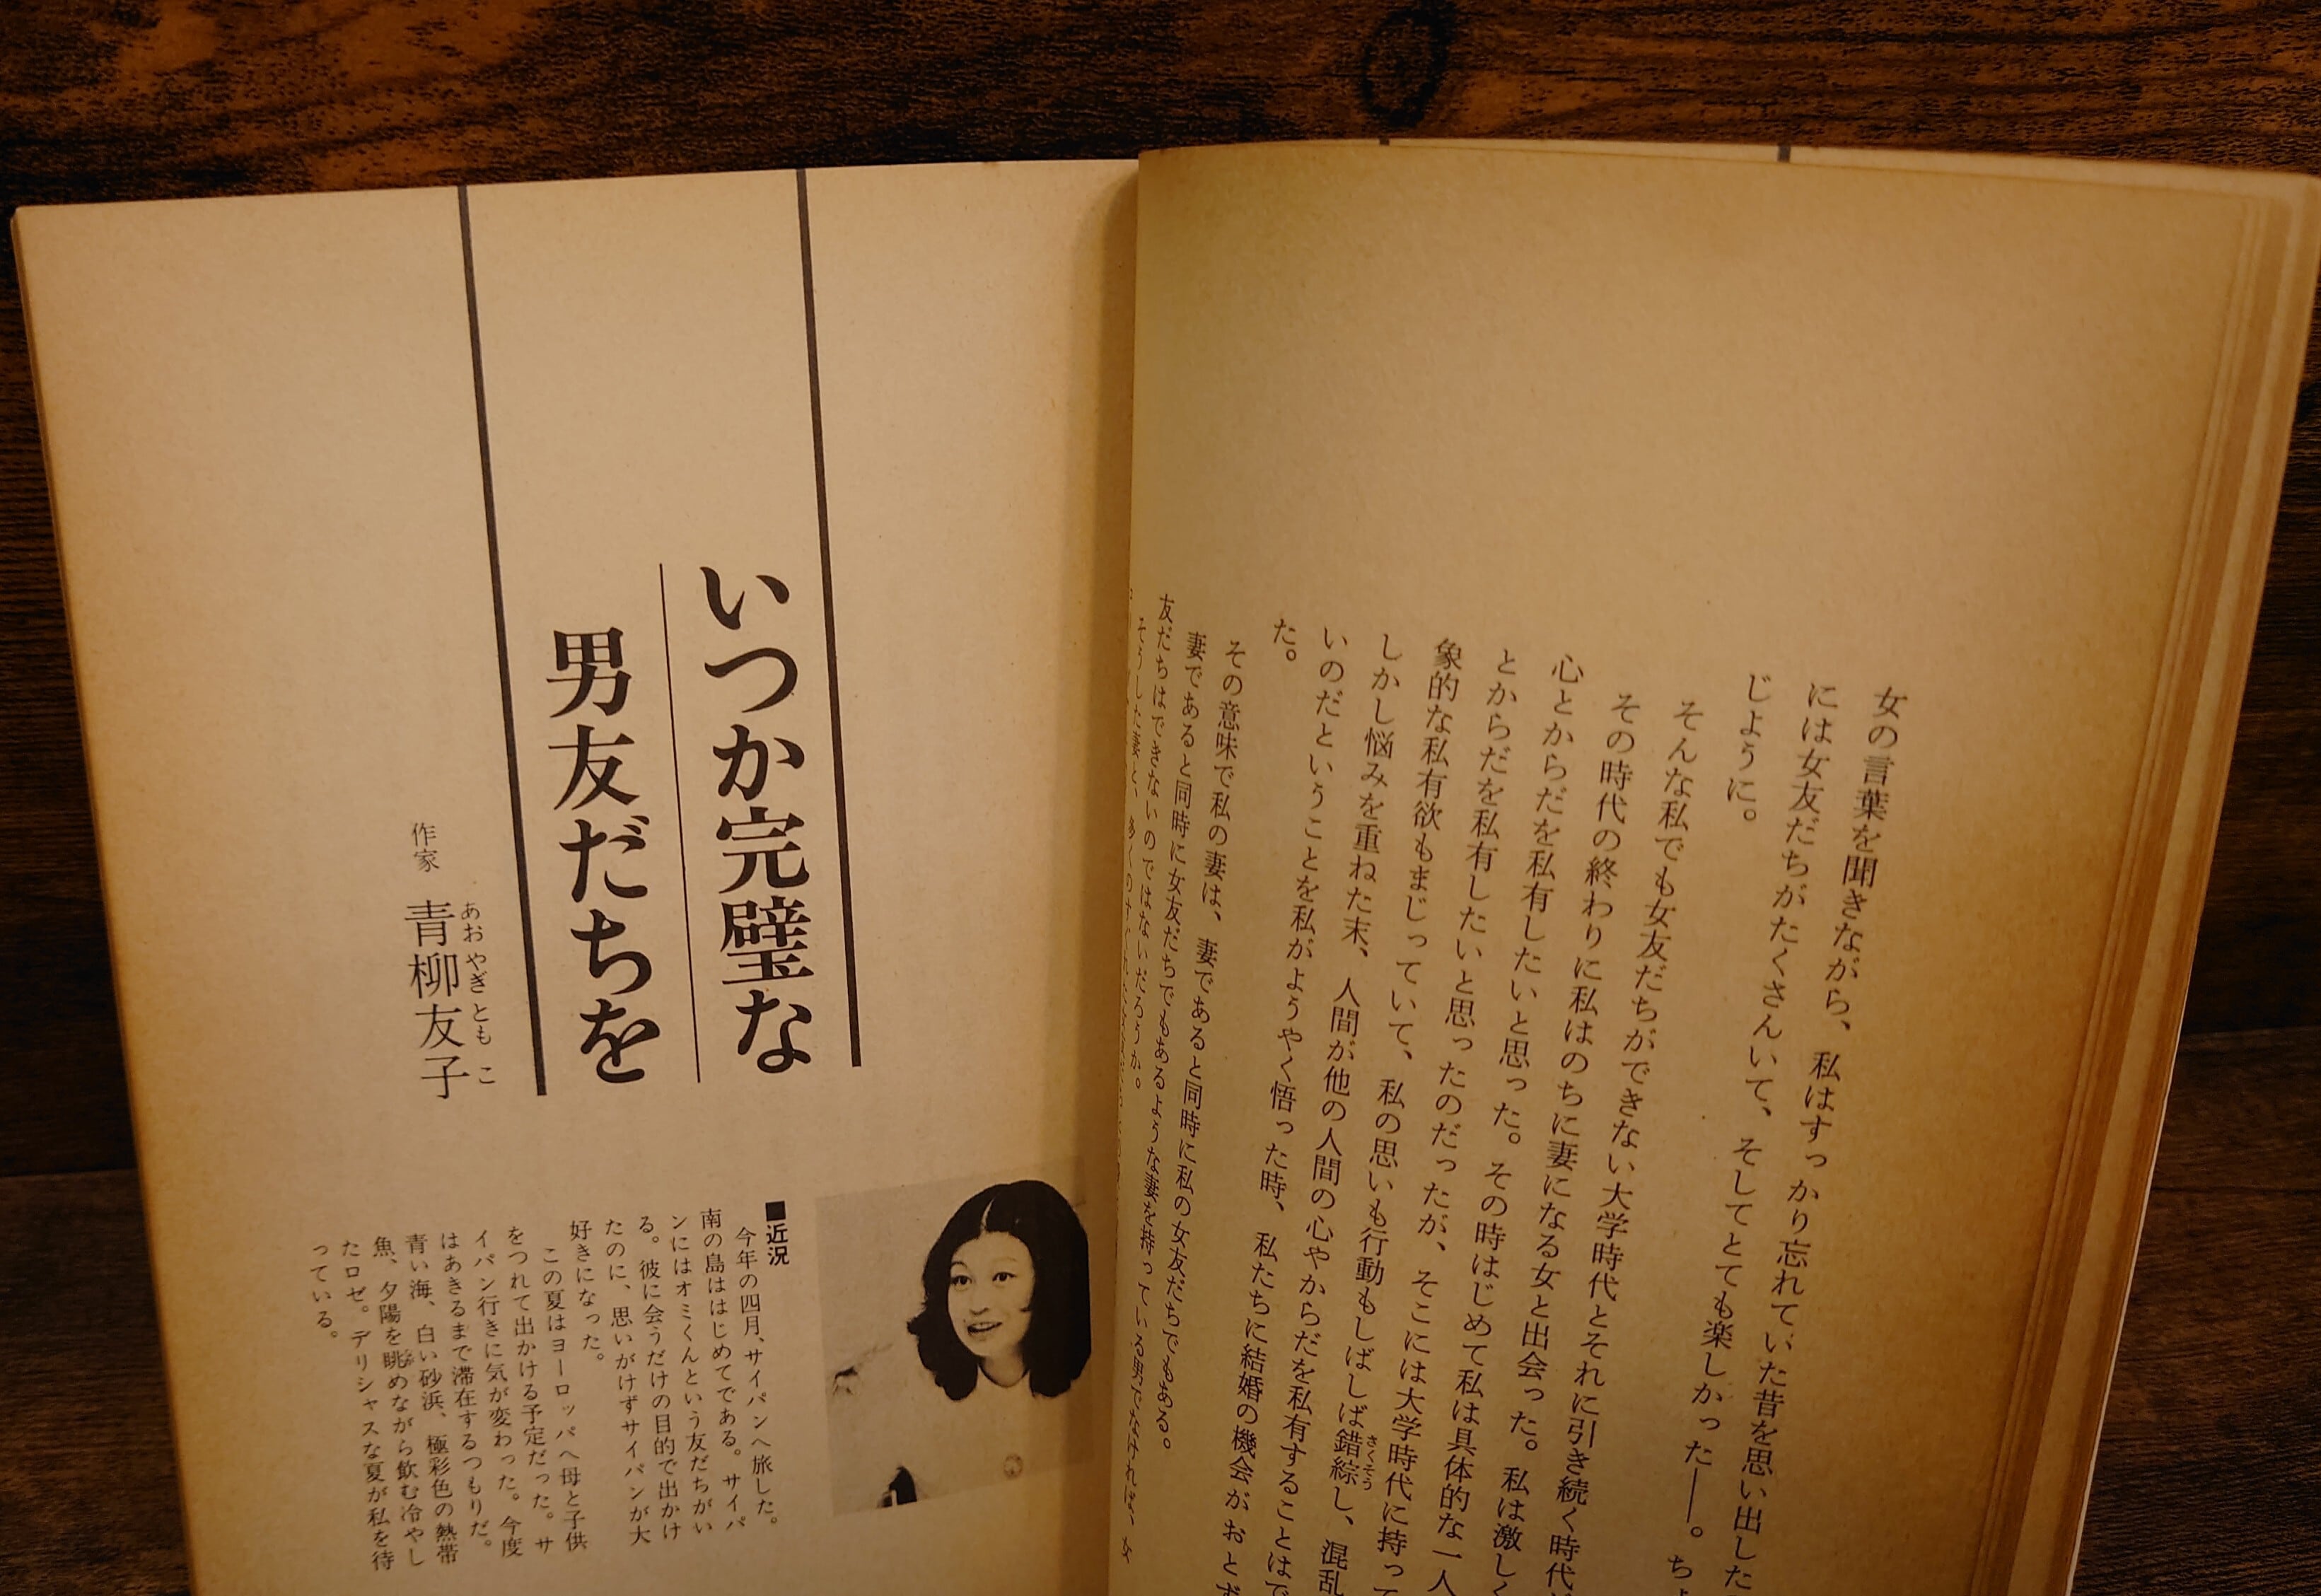 女の言葉を聞きながら、私はすっかり忘れていた昔を思い出した
には女友だちがたくさんいて、そしてとても楽しかった――。ちょ
じように。
そんな私でも女友だちができない大学時代とそれに引き続く時代
その時代の終わりに私はのちに妻になる女と出会った。私は激しく
心とからだを私有したいと思った。その時はじめて私は具体的な一人
とからだを私有したいと思ったのだったが、そこには大学時代に持って
象的な私有欲もまじっていて、私の思いも行動もしばしば錯綜し、混乱
さくそう
しかし悩みを重ねた末、人間が他の人間の心やからだを私有することはで
いのだということを私がようやく悟った時、私たちに結婚の機会がおとず
た。
その意味で私の妻は、妻であると同時に私の女友だちでもある。
妻であると同時に女友だちでもあるような妻を持っている男でなければ、女
友だちはできないのではないだろうか。
いつか完璧な
男友だちを
作家 青柳友子
あおやぎともこ
■近況
今年の四月、サイパンへ旅した。
南の島ははじめてである。サイパ
ンにはオミくんという友だちがい
る。彼に会うだけの目的で出かけ
たのに、思いがけずサイパンが大
好きになった。
この夏はヨーロッパへ母と子供
をつれて出かける予定だった。サ
イパン行きに気が変わった。今度
はあきるまで滞在するつもりだ。
青い海、白い砂浜、極彩色の熱帯
魚、夕陽を眺めながら飲む冷やし
たロゼ。デリシャスな夏が私を待
っている。